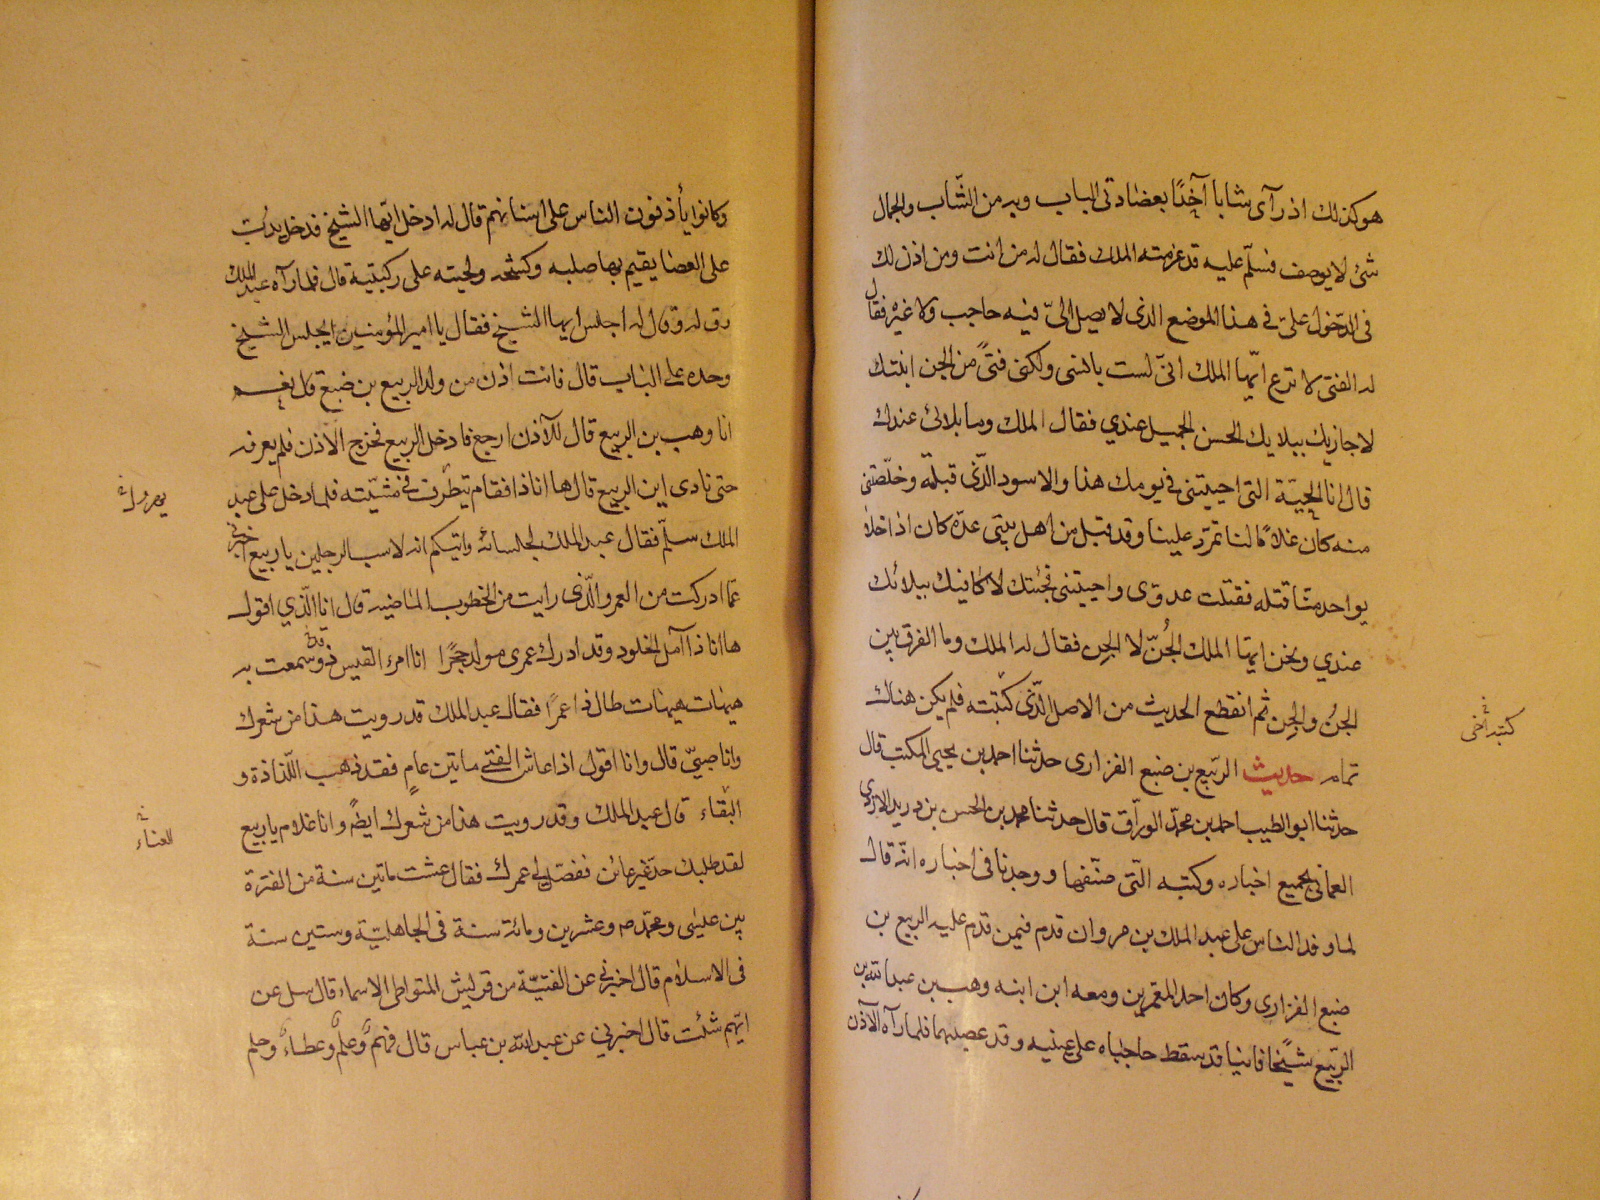 هو كذلك اذ رآى شابا آخِذًا بعضادتى الباب وبه من الشّاب والجمال
شئ لا يوصف فسلّم عليه قد عزمته الملك فقال له من انت ومن اذن لك
فى الدّخول علىّ فى هذا الموضع الذى لا يصل الىّ فيه حاجب ولا غيره فقال
له الفتى لا ترع ايّها الملك انىّ لست بانسى ولكنى فتىً من الجن اتيتك
لاجازيك ببلايك الحسن الجميل عندي فقال الملك وما بلائى عندك
قال انا الحيّة التى احييتنى فى يومك هذا والاسود الّذى قتلته وخلّصتنى
منه كان غلامًا لنا تمرّد علينا وقد قتل من اهل بيتى عدّة كان اذا خلا
بواحد منّا قتله فقتلت عدوّى واحييتنى فجئتك لاكافيك ببلائك
عندي ونحن ايها الملك الجُنّ لا الجِن فقال له الملك وما الفرق بين
الجُن والجِن ثم انقطع الحديث من الاصل الّذى كتبته فلم يكن هناك
كتبه اخى
تمامه حديث الرّبيع بن ضبع الفزارى حدثنا احمد بن يحيى المكتب قال
حدثنا ابو الطيب احمد بن محمّد الورّاق قال حدثنا محمد بن الحسن بن دريد الازدى
العمانى بجميع اخباره وكتبه الّتى صنّفها ووجدنا فى اخباره انّه قال
لما وفد الناس على عبد الملك بن مروان قدم فيمن قدم عليه الربيع بن
ضبع الفزارى وكان احد المعمّرين ومعه ابن ابنه وهب بن عبد الله بن
الربّيع شيخًا فانيا قد سقط حاجباه على عينيه وقد عصبهما فلما رآه الآذن
وكانوا يأذنون الناس على اسنانهم قال له ادخل ايّها الشيخ فدخل يدُبّ
على العصا يقيم بها صلبه وكشحه ولحيته على ركبتيه قال فلما رآه عبد الملك
رق له وقال له اجلس ايها الشيخ فقال يا امير المؤمنين ايجلس الشيخ
وجده على الباب قال فانت اذن من ولد الربيع بن ضبع قال نعم
انا وهب بن الربيع قال للآذن ارجع فادخل الربيع فخرج الآذن فلم يعرفه
حتى نادى اين الربيع قال ها انا ذا فقام يتطرف فى مشيّته فلما دخل على عبد
يهرول
الملك سلّم فقال عبد الملك لجلسائه وابيكم انه لاشب الرجلين يا ربيع اخبرنى
عمّا ادركت من العمر والّذى رايت من الخطوب الماضيه قال انا الّذي اقول
ها انا ذا آمل الخلود وقد ادرك عمرى مولد حجرًا انا امرء القيس قد سمعت به
هيهات هيهات طال ذا عمرًا فقال عبد الملك قد رويت هذا من شعرك
وانا صبىّ قال وانا اقول اذا عاش الفتى ماتين عام فقد ذهب اللّذاذة و
البقاء قال عبد الملك وقد رويت هذا من شعرك ايضًا وانا غلام يا ربيع
الغناء
لقد طلبك جدّ غير عاثر ففصّل لى عمرك فقال عشت ماتين سنة من الفترة
بين عليسى ومحمّد ص وعشرين ومائة سنة فى الجاهليّة وستين سنة
فى الاسلام قال اخبرنى عن الفتيّة من قريش المتواطى الاسماء قال سل عن
ايّهم شئت قال اخبرنى عن عبد الله بن عباس قال فهمٌ وعلمٌ وعطاءٌ وحلم